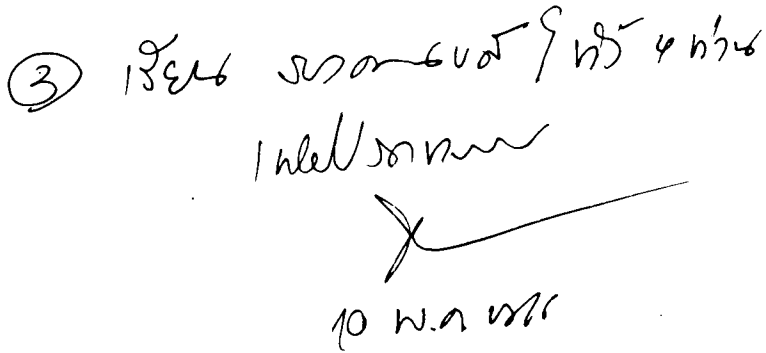 ③ เรียน รองคณบดี ทั้ง 4 ท่าน
เพื่อโปรดทราบ
10 พ.ค